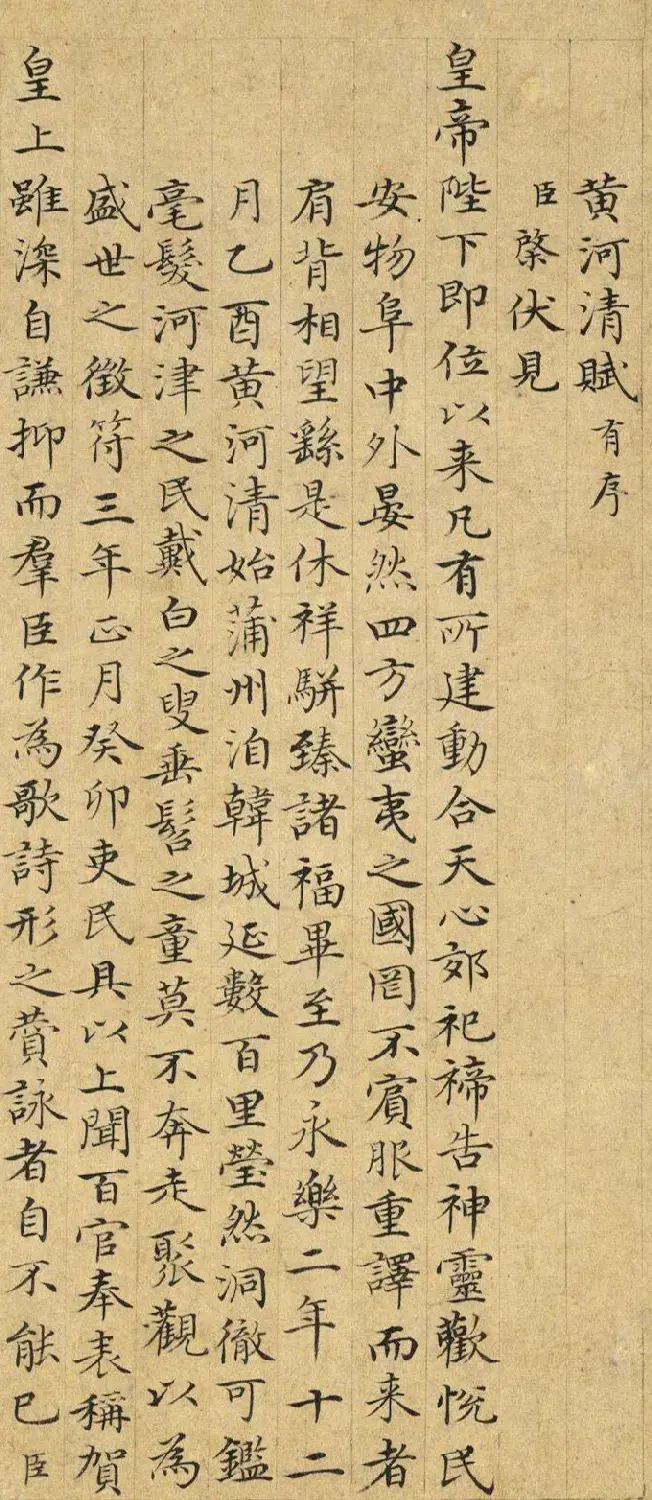 黄河清賦有序
臣棨伏見
皇帝陛下即位以来凡有所建動合天心郊祀禘告神靈歡悅民
安物阜中外晏然四方蠻夷之國罔不賓服重譯而来者
肩背相望繇是休祥駢臻諸福畢至乃永樂二年十二
月乙酉黄河清始蒲州洎韓城延數百里瑩然洞徹可鑑
毫髮河津之民戴白之叟垂髫之童莫不奔走聚觀以為
盛世之徵符三年正月癸卯吏民具以上聞百官奉表稱賀
皇上雖深自謙抑而羣臣作為歌詩形之賛詠者自不能已臣